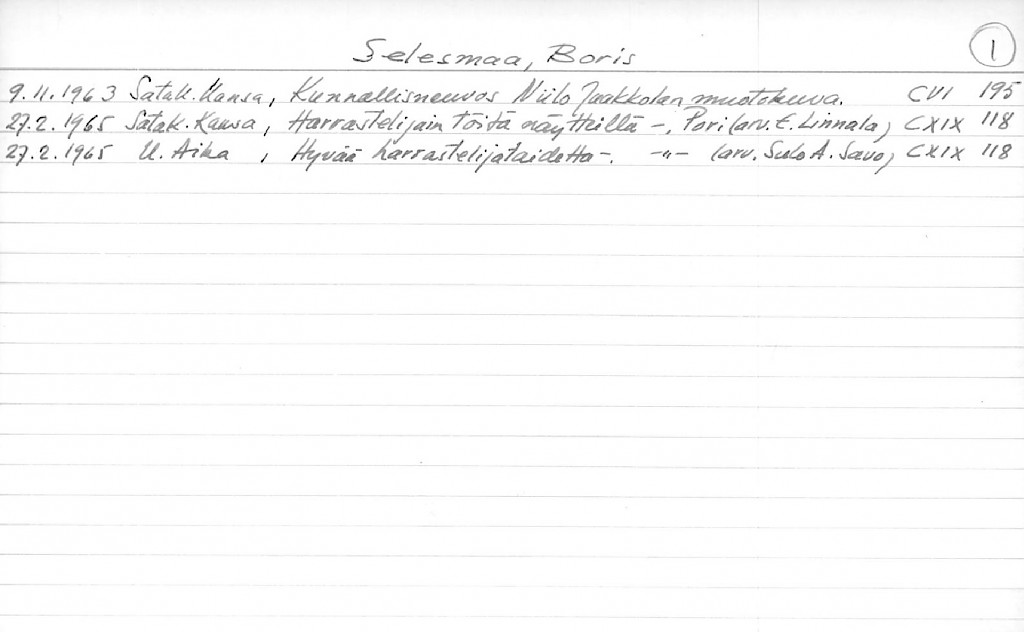 Selesmaa, Boris
1
9.11.1963 Satak. Kansa, Kunnallisneuvos Niilo Jaakkolan muotokuva. CVI 195
27.2.1965 Satak. Kansa, Harrastelijain töitä näytteillä -, Pori (arv. E. Linnala) CXIX 118
27.2.1965 U. Aika, Hyvää harrastelijataidetta -. -"- (arv. Sulo A. Savo) CXIX 118